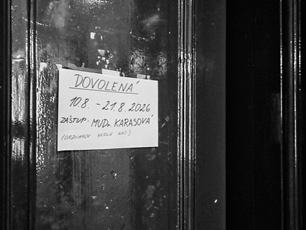 DOVOLENÁ
10.8. - 21.8. 2026
ZÁSTUP: MUDr. KARASOVÁ
(ORDINACE VEDLE NÁS)